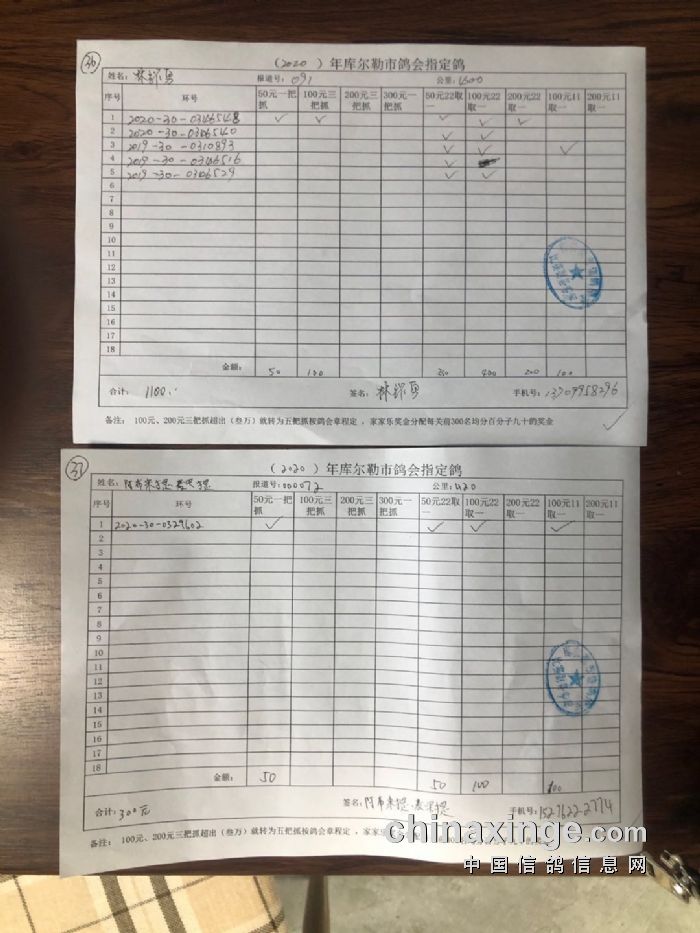 36
(2020 ) 年库尔勒市鸽会指定鸽
姓名: 报道号: 091 公里:
序号 环号 50元一把抓 100元三把抓 200元三把抓 300元一把抓 50元22取一 100元22取一 200元22取一 100元11取一 200元11取一
1 2020-30-0346548 ✓ ✓ ✓ ✓ ✓
2 2020-30-0346540 ✓ ✓
3 2019-30-0310893 ✓ ✓ ✓
4 2019-30-0346516 ✓
5 2019-30-0346529 ✓ ✓
6
7
8
9
10
11
12
13
14
15
16
17
18
金额: 50 100 400 200 100
合计: 1100 签名: 手机号: 13709958296
备注: 100元、200元三把抓超出(叁万)就转为五把抓按鸽会章程定,家家乐奖金分配每关前300名均分百分子九十的奖金
37
(2020 ) 年库尔勒市鸽会指定鸽
姓名: 报道号: 000072 公里: 420
序号 环号 50元一把抓 100元三把抓 200元三把抓 300元一把抓 50元22取一 100元22取一 200元22取一 100元11取一 200元11取一
1 2020-30-0329602 ✓ ✓ ✓ ✓
2
3
4
5
6
7
8
9
10
11
12
13
14
15
16
17
18
金额: 50 50 100 100
合计: 300元 签名: 手机号: 15276222774
备注: 100元、200元三把抓超出(叁万)就转为五把抓按鸽会章程定,家家乐
chinaxinge.com
中国信鸽信息网